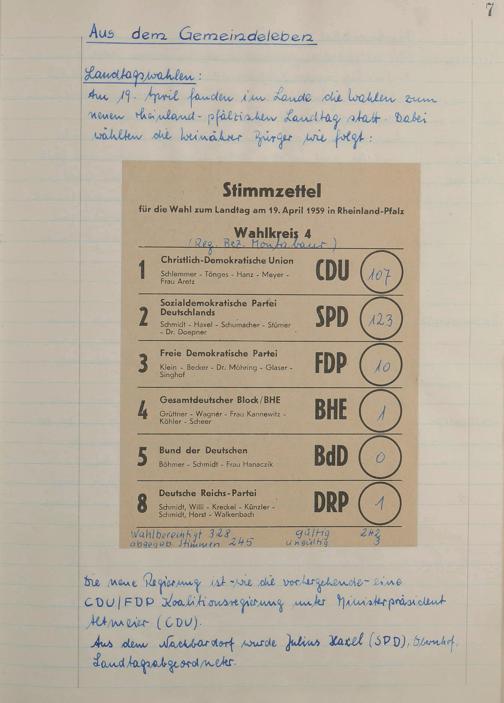 7
Aus dem Gemeindeleben
Landtagswahlen:
Am 19. April fanden im Lande die Wahlen zum
neuen rheinland-pfälzischen Landtag statt. Dabei
wählten die Weinährer Bürger wie folgt:
Stimmzettel
für die Wahl zum Landtag am 19. April 1959 in Rheinland-Pfalz
Wahlkreis 4
(Reg. Bez. Montabaur)
1 Christlich-Demokratische Union CDU 107
Schlemmer - Tönges - Hanz - Meyer -
Frau Aretz
2 Sozialdemokratische Partei
Deutschlands SPD 123
Schmidt - Haxel - Schumacher - Stürmer
- Dr. Doepner
3 Freie Demokratische Partei FDP 10
Klein - Becker - Dr. Möhring - Glaser -
Singhof
4 Gesamtdeutscher Block/BHE BHE 1
Grüttner - Wagner - Frau Kannewitz -
Köhler - Scheer
5 Bund der Deutschen BdD 0
Böhmer - Schmidt - Frau Hanaczik
8 Deutsche Reichs-Partei DRP 1
Schmidt, Willi - Kreckel - Künzler -
Schmidt, Horst - Walkenbach
Wahlberechtigt 328 gültig 242
abgegeb. Stimmen 245 ungültig 3
Die neue Regierung ist - wie die vorhergehende - eine
CDU/FDP Koalitionsregierung unter Ministerpräsident
Altmeier (CDU).
Aus dem Nachbardorf wurde Julius Haxel (SPD), Obernhof,
Landtagsabgeordneter.